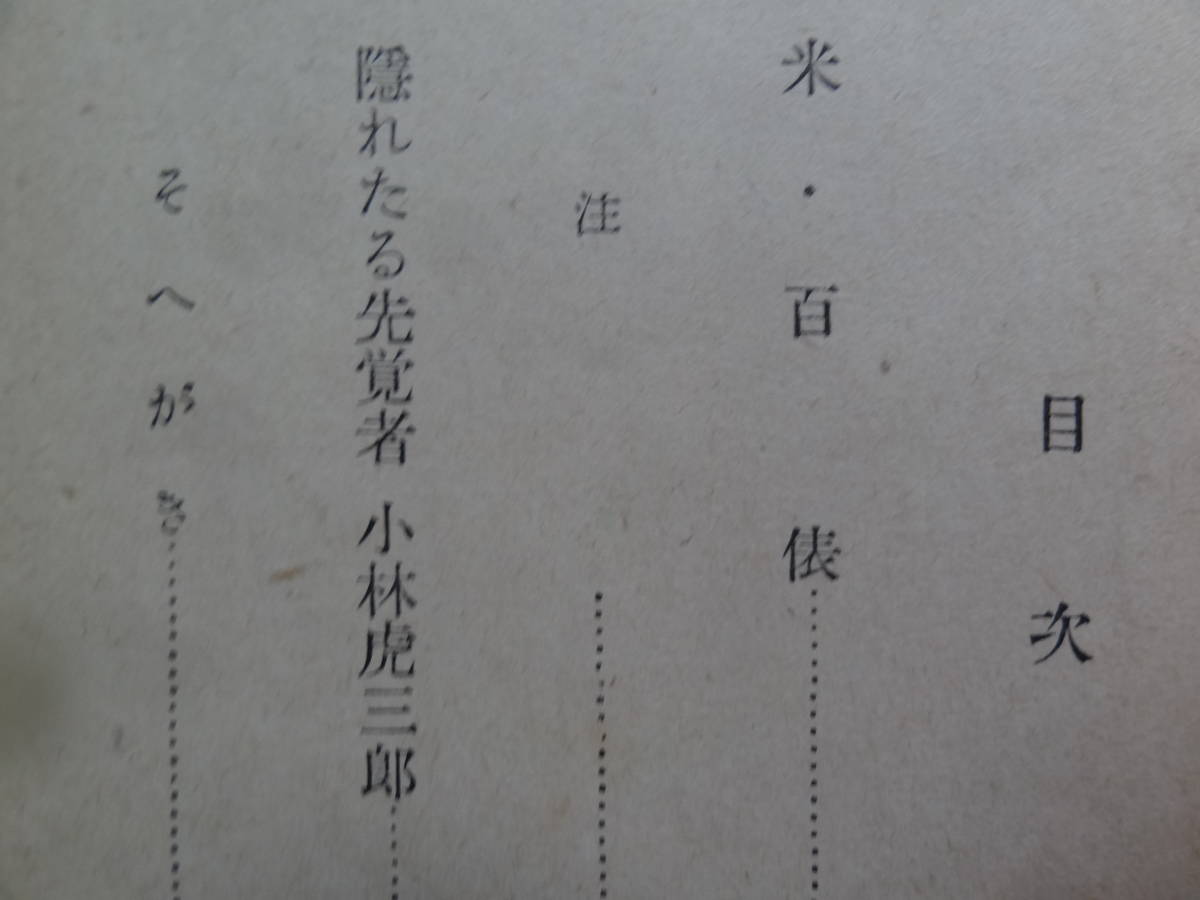 目次
米・百俵
注
隠れたる先覚者 小林虎三郎
そへがき